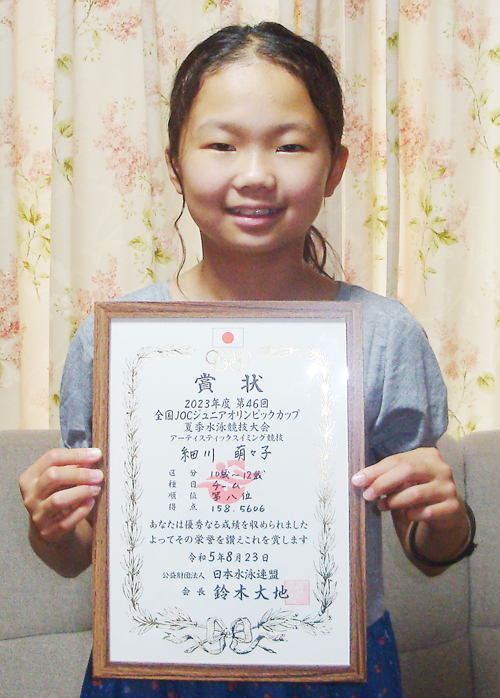 賞状
2023年度 第46回
全国JOCジュニアオリンピックカップ
夏季水泳競技大会
アーティスティックスイミング競技
細川 萌々子
区分 10歳~12歳
種目 チーム
順位 第八位
得点 158.5606
あなたは優秀なる成績を収められました
よってその栄誉を讃えこれを賞します
令和5年8月23日
公益財団法人 日本水泳連盟
会長 鈴木大地